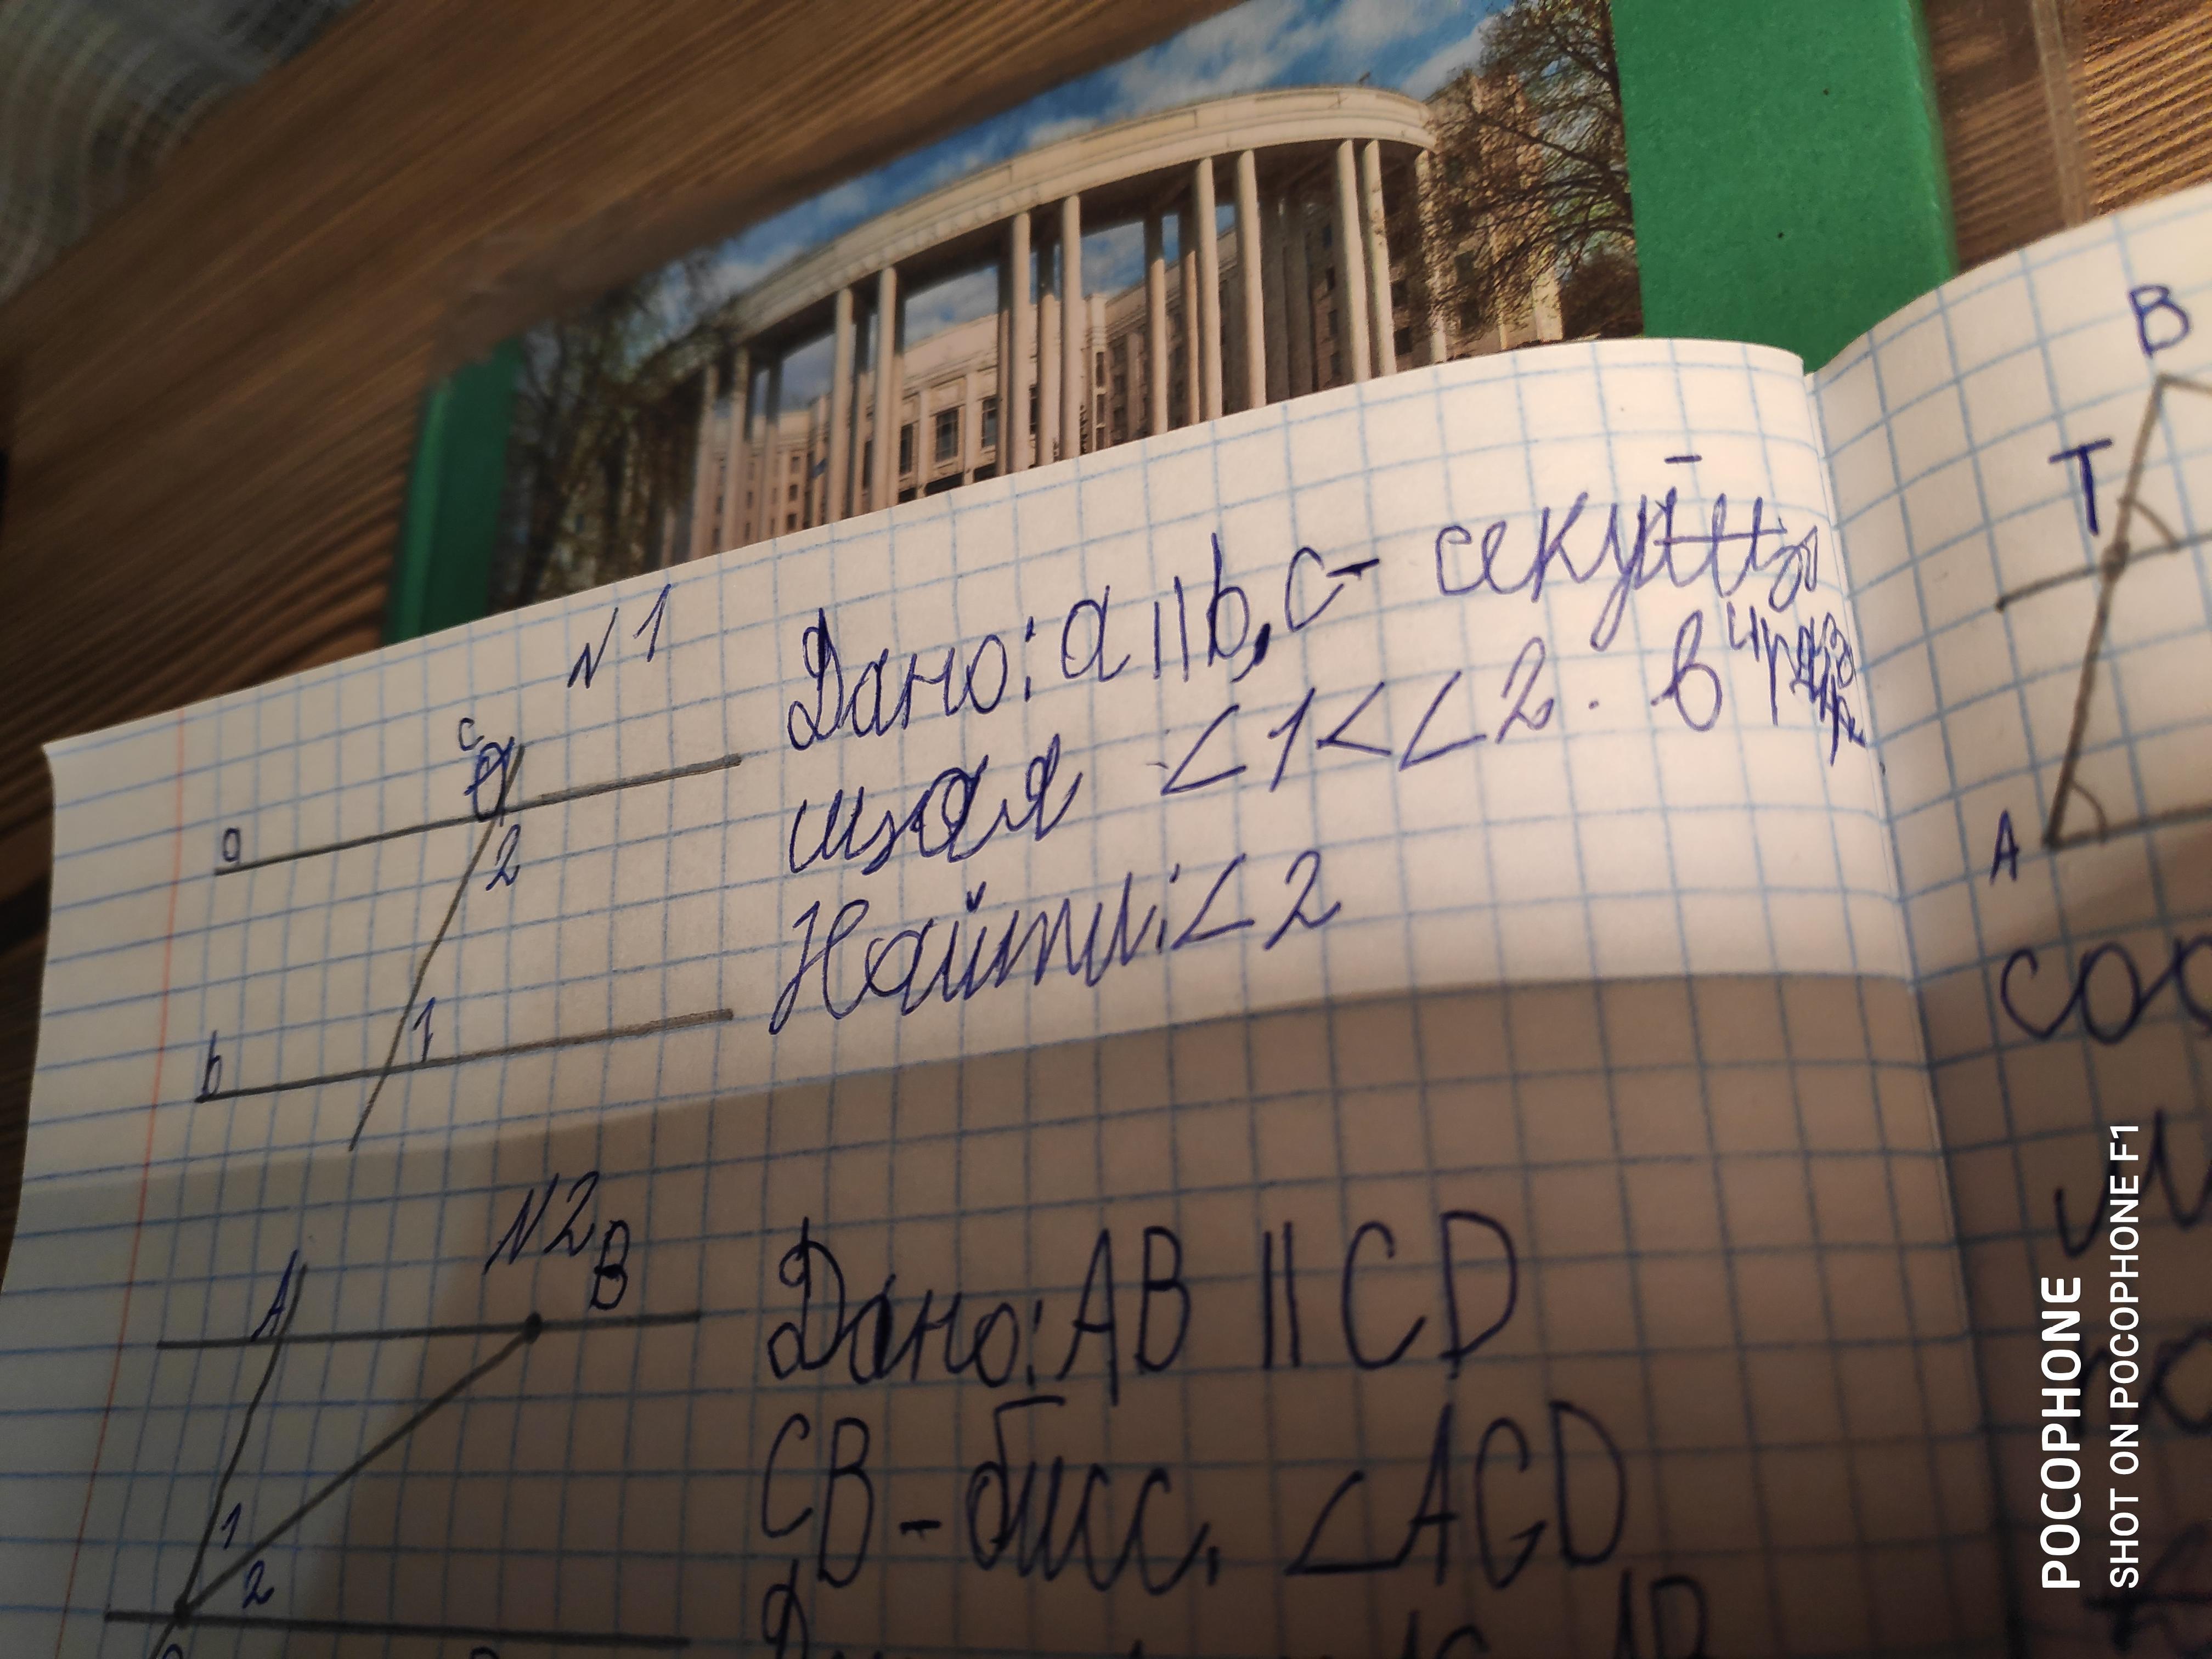 N1
Дано: a || b, c - секу
щая ∠1<∠2. в 4 раза
Найти: ∠2
c
a
2
b
1
N2
A
B
1
2
Дано: AB || CD
CB - бисс. ∠ACD
B
T
A
POCOPHONE
SHOT ON POCOPHONE F1